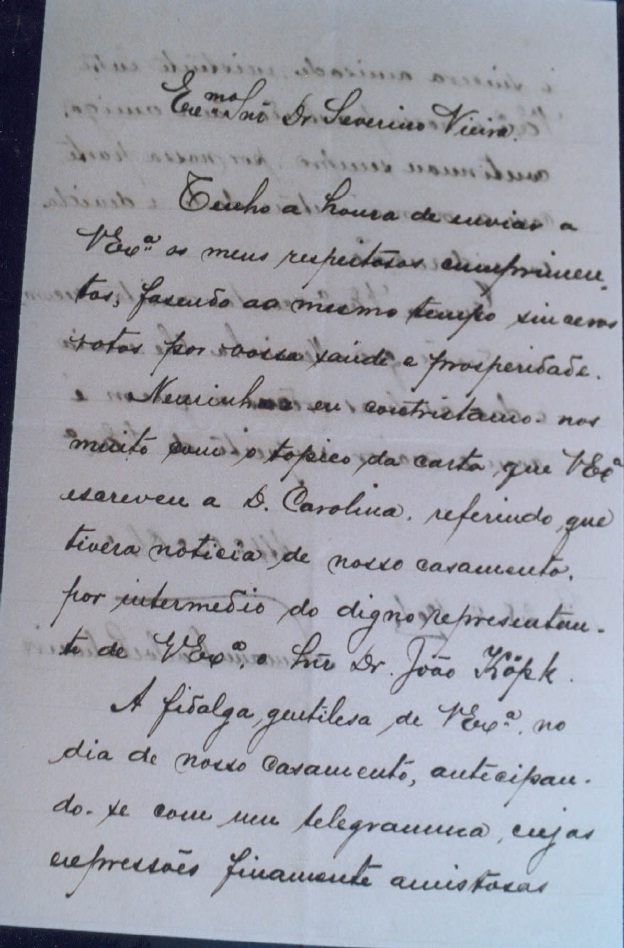 Exmo Snr Dr Severino Vieira.
Tenho a honra de enviar a
VExª os meus respeitosos cumprimen-
tos, fasendo ao mesmo tempo sinceros
votos por vossa saude e prosperidade.
e eu contristamo-nos
muito com o topico da carta que VExª
escreveu a D. Carolina, referindo que
tivera noticia de nosso casamento,
por intermedio do digno representan-
te de VExª, o Snr Dr. João Köpk.
A fidalga gentilesa de VExª, no
dia de nosso casamento, antecipan-
do-se com um telegramma, cujas
expressões finamente amistosas